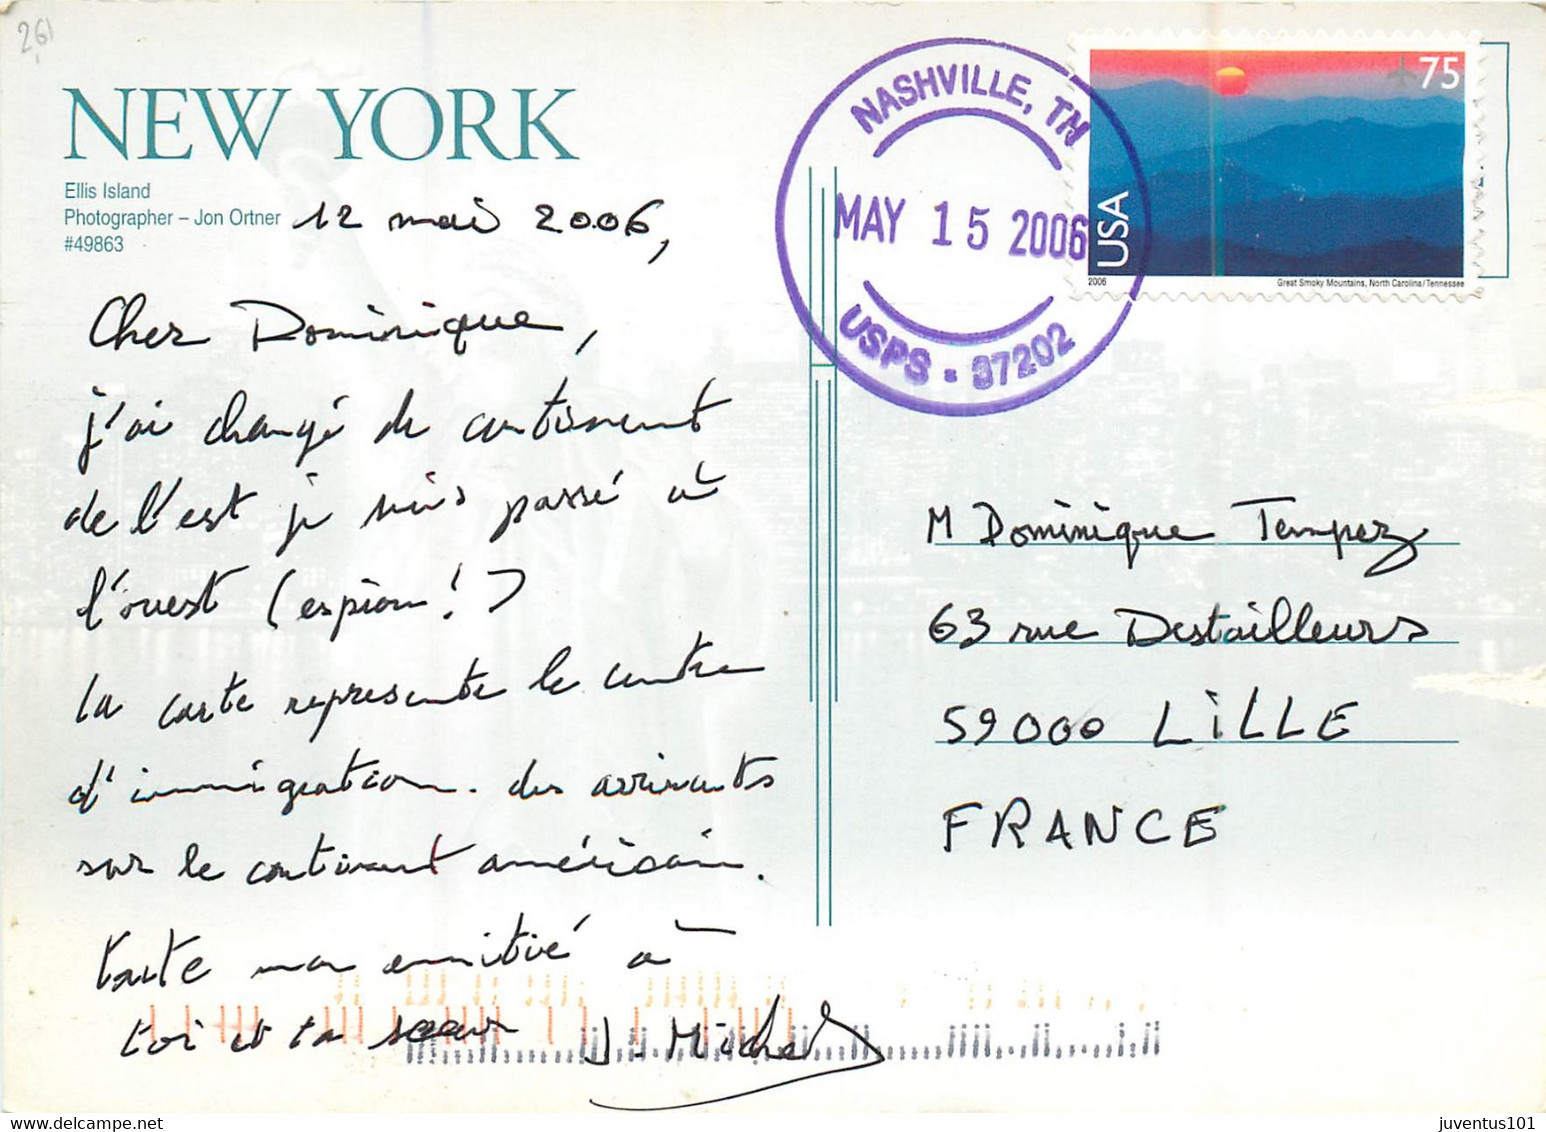 261
NEW YORK
Ellis Island
Photographer – Jon Ortner
#49863
12 mai 2006,
Cher Dominique,
j'ai changé de continent
de l'est je suis passé à
l'ouest (espion!)
la carte représente le centre
d'immigration. des arrivants
sur le continent américain.
toute mon amitié à
toi et ta sœur J-Michel
NASHVILLE, TN
MAY 15 2006
USPS - 37202
75
USA
2006
Great Smoky Mountains, North Carolina/Tennessee
M Dominique Tempez
63 rue Destailleurs
59000 LiLLE
FRANCE
juventus101